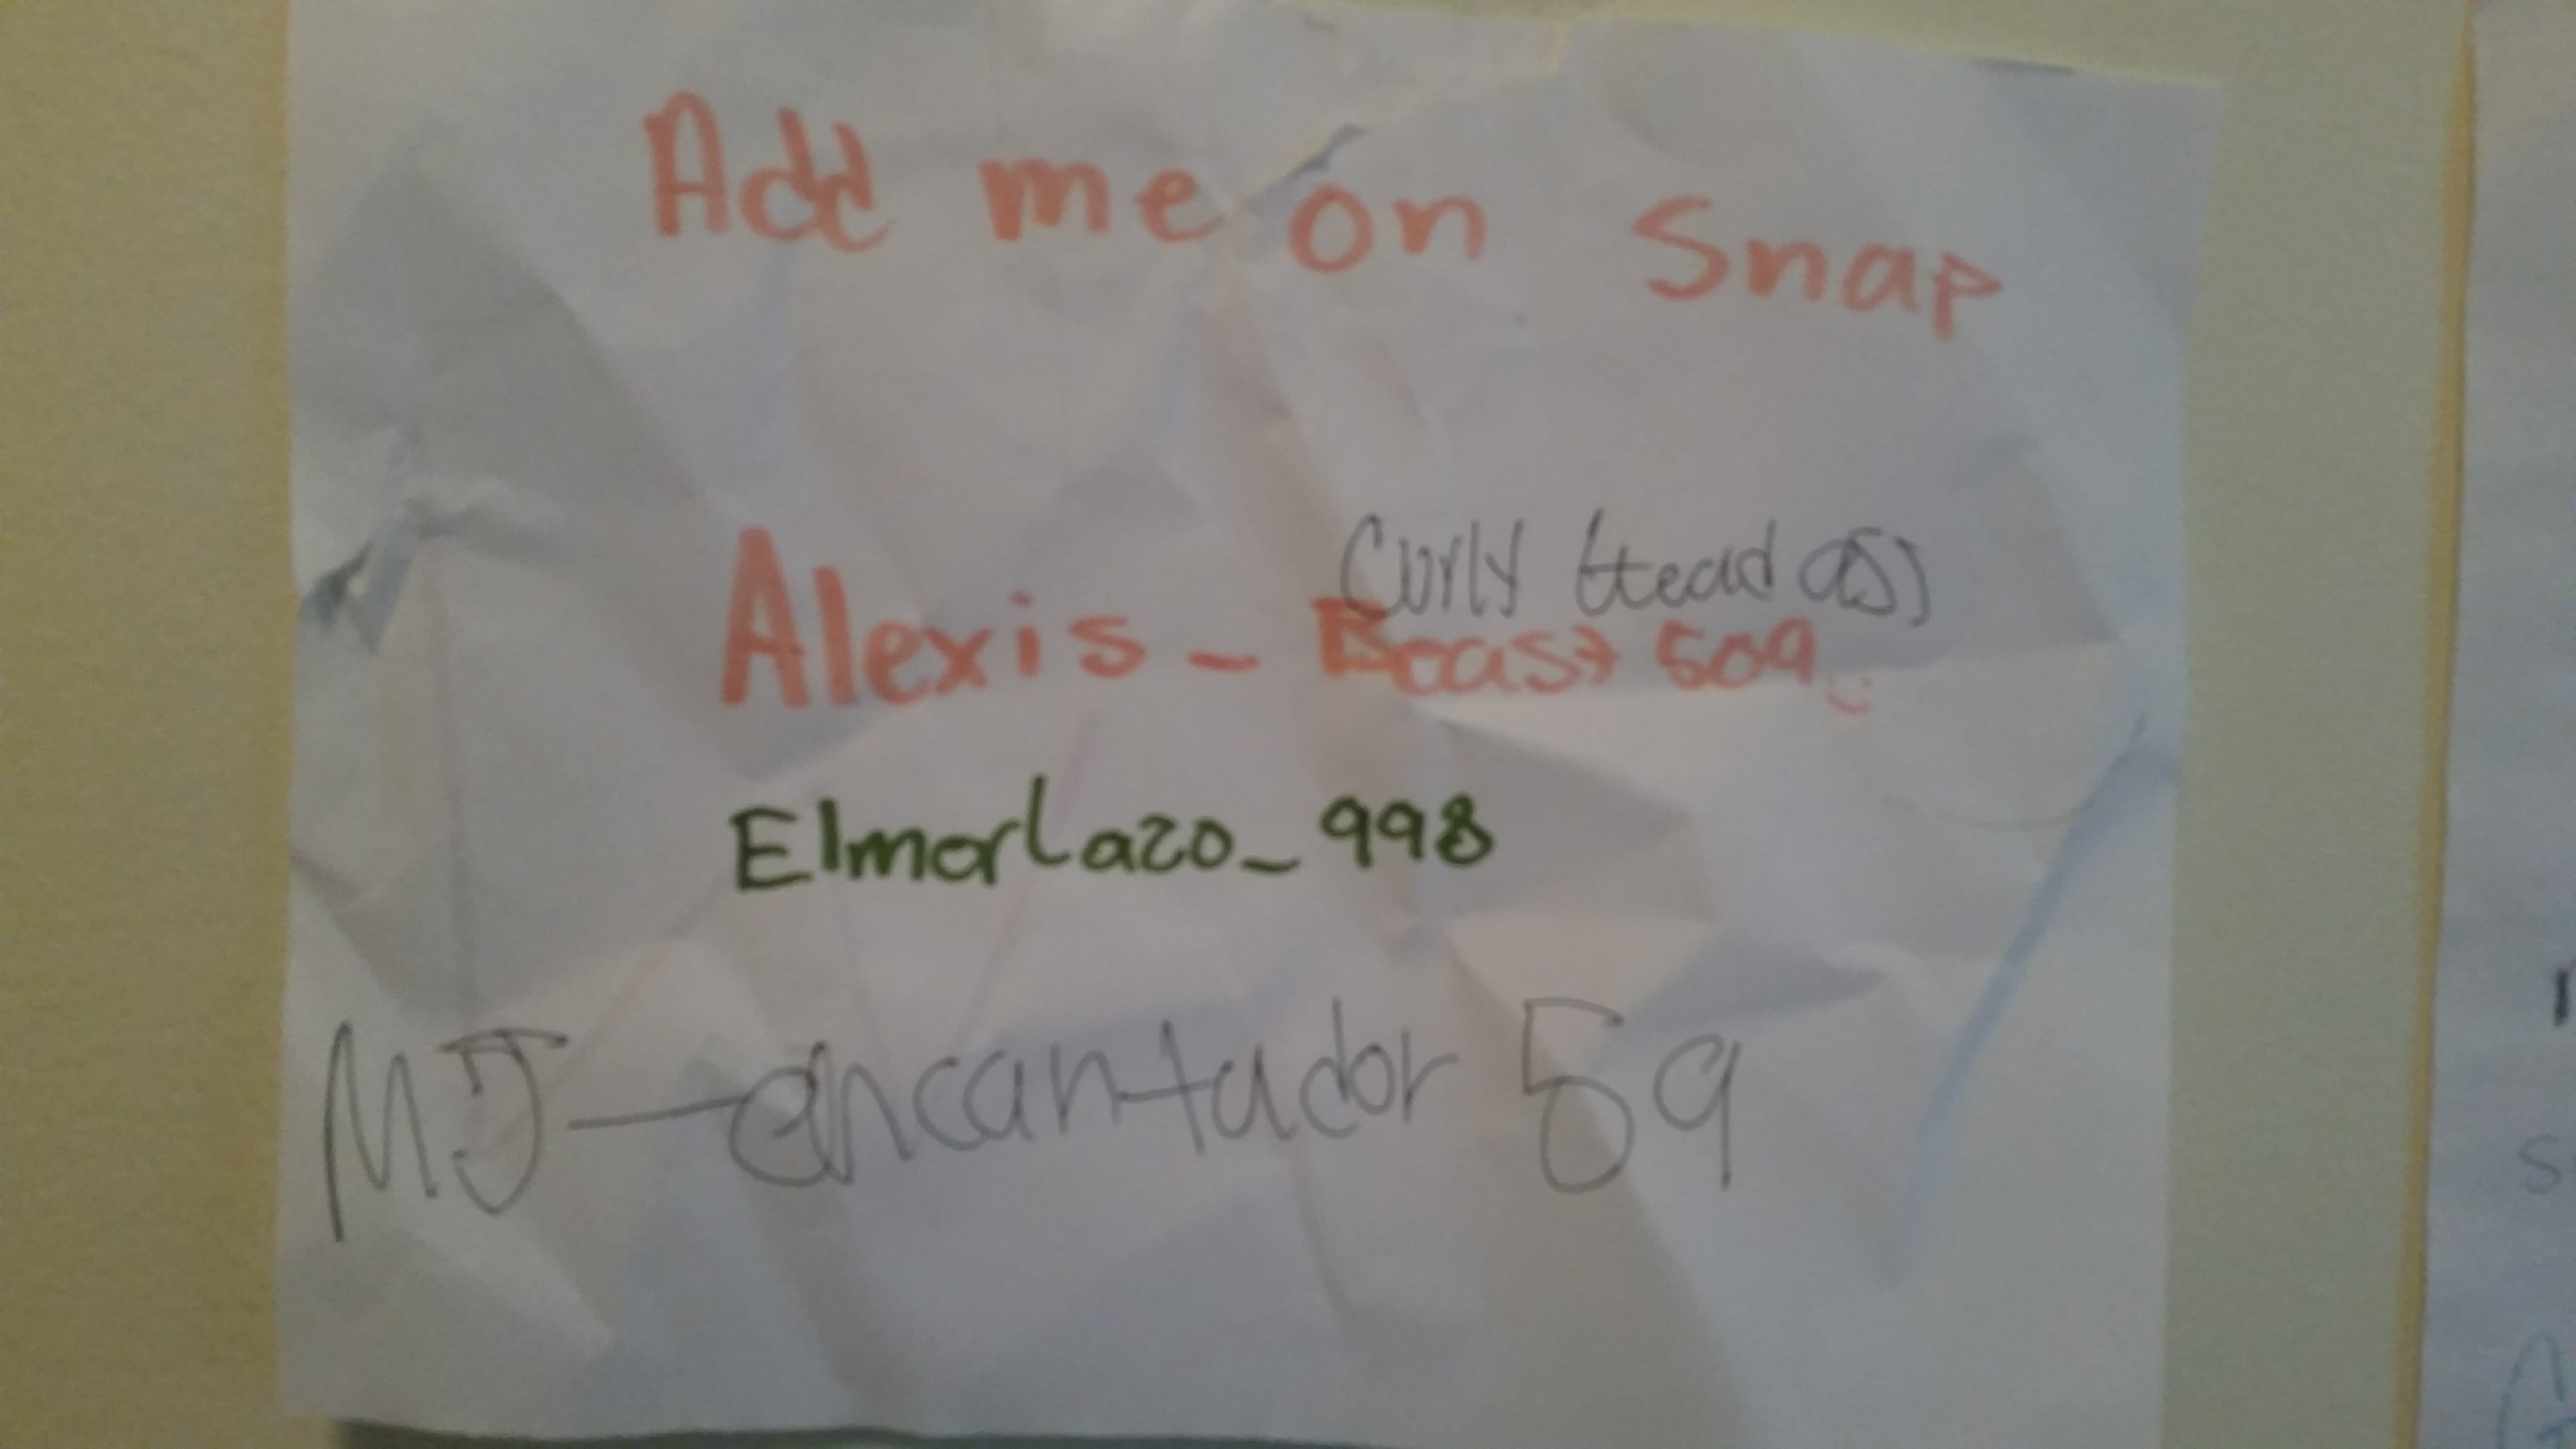 Add me on Snap
Curly Head ass
Alexis_Beast509
ElmorLazo_998
MJ—encantador 59